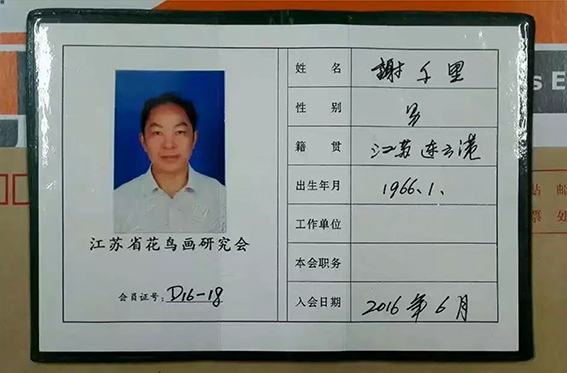 江苏省花鸟画研究会
会员证号：D16-18
姓名 謝千里
性别 男
籍贯 江苏连云港
出生年月 1966.1.
工作单位
本会职务
入会日期 2016年6月
s E
站 邮
票 处